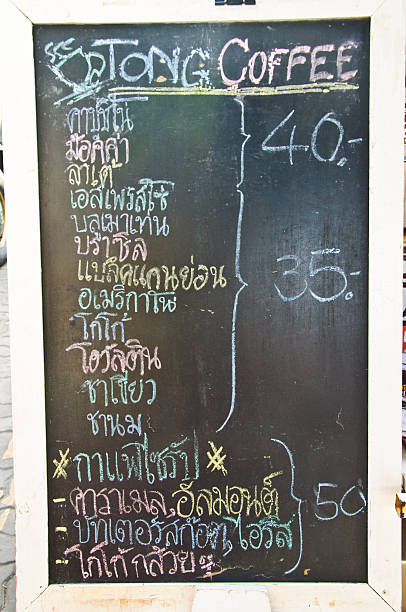 TONG COFFEE
คาปูชิโน
มอคค่า
ลาเต้
เอสเพรสโซ่
บลูเมาเท่น
บราซิล
แบล็คแคนย่อน
อเมริกาโน่
โกโก้
โอวัลติน
ชาเขียว
ชานม
40.-
35.-
* กาแฟไซรัป *
- คาราเมล, อัลมอนด์
- บัทเตอร์สก๊อต, ไอริส
- โกโก้กล้วย
50